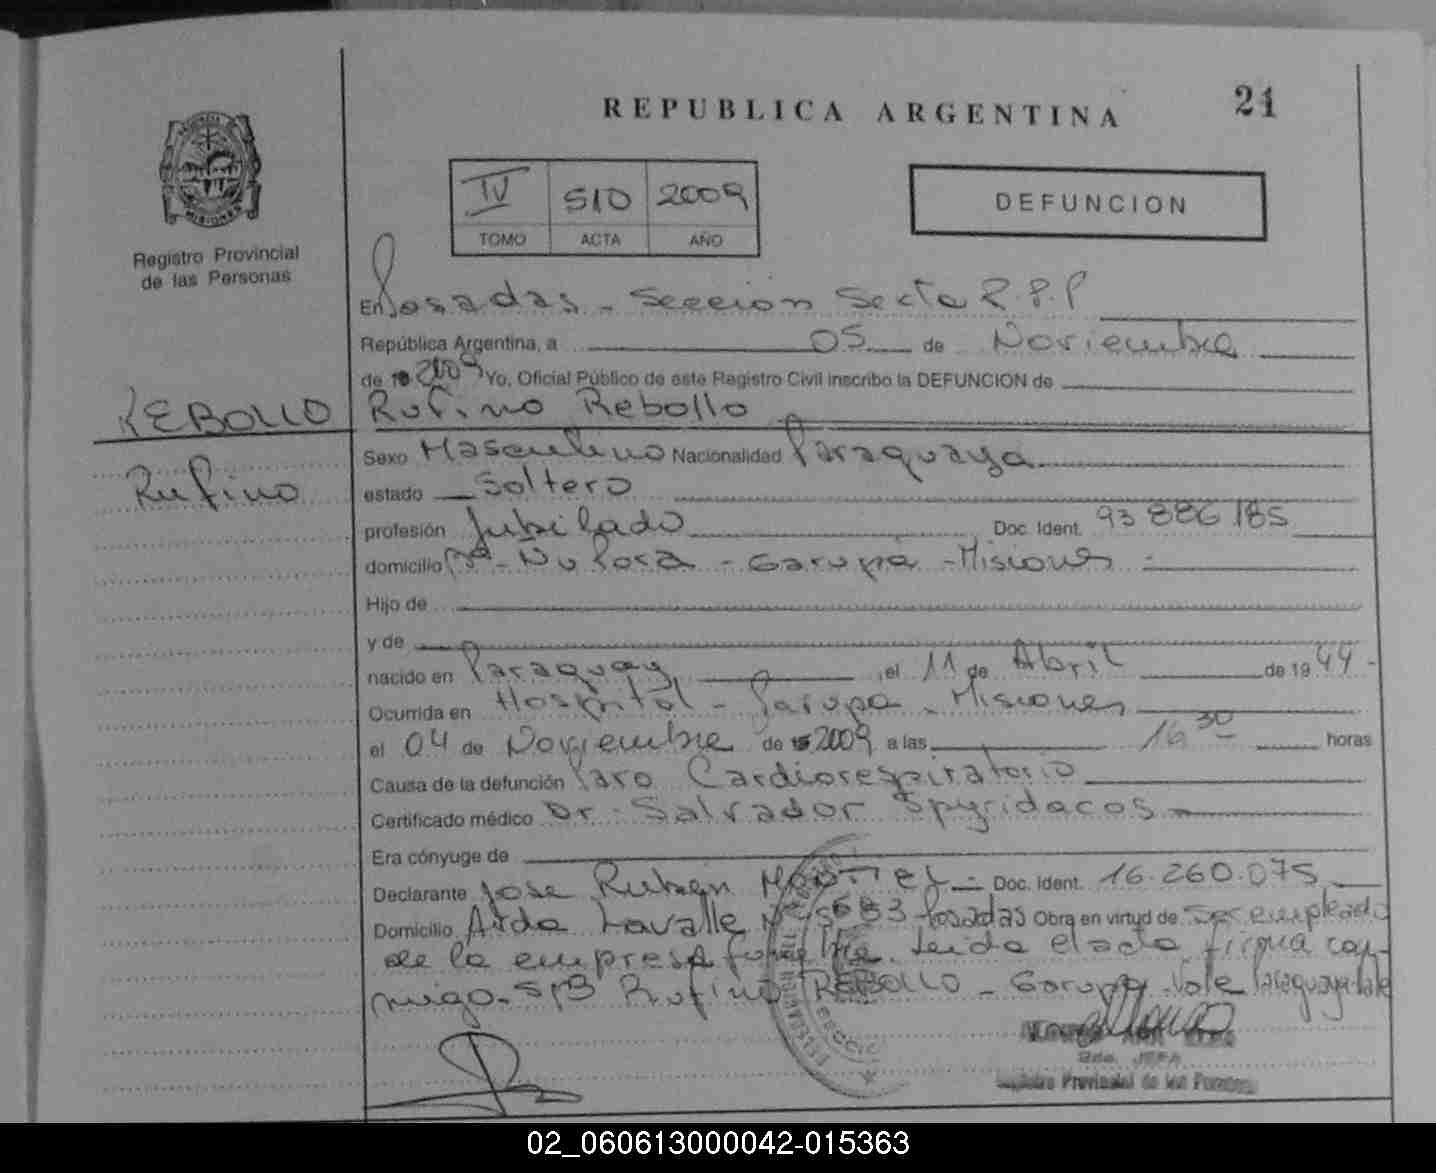 REPUBLICA ARGENTINA
21
PROVINCIA DE
MISIONES
Registro Provincial
de las Personas
IV 510 2009
TOMO ACTA AÑO
DEFUNCION
En Posadas - Sección Sexta R.P.P
República Argentina, a 05 de Noviembre
de 2009 Yo, Oficial Público de este Registro Civil inscribo la DEFUNCION de
REBOLLO Rufino Rebollo
Sexo Masculino Nacionalidad Paraguaya
Rufino
estado Soltero
profesión Jubilado Doc. Ident. 93 886 185
domicilio - Garupa - Misiones
Hijo de
y de
nacido en Paraguay el 11 de Abril de 1944
Ocurrida en Hospital - Garupa - Misiones
el 04 de Noviembre de 2009 a las 16 30 horas
Causa de la defunción Paro Cardiorespiratorio
Certificado médico Dr. Salvador Spyridacos
Era cónyuge de
Declarante Jose Ruben Doc. Ident. 16.260.075
Domicilio Avda Lavalle Nº 5683 Posadas Obra en virtud de Ser empleado
de la empresa funebre. Leida el acta firma con-
migo. S/B Rufino REBOLLO - Garupa. Vale Paraguaya. Vale
2da. JEFA
Registro Provincial de las Personas
02_060613000042-015363